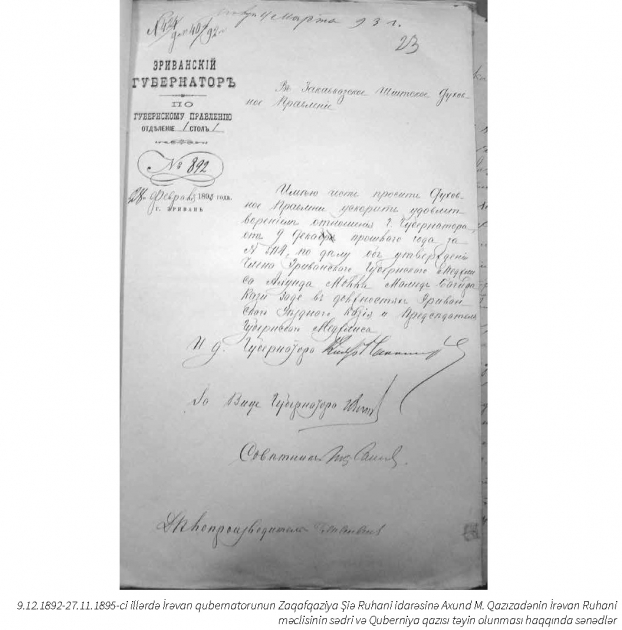 4 Марта 93 г.
23
ЭРИВАНСКІЙ
ГУБЕРНАТОРЪ
ПО
ГУБЕРНСКОМУ ПРАВЛЕНІЮ
ОТДѢЛЕНІЕ 1 СТОЛЪ 1
№ 892
Февраля 1893 года.
Г. ЭРИВАНЬ
Въ Закавказское Шіитское Духов-
ное Правленіе
Имѣю честь просить Духов-
ное Правленіе ускорить удовлет-
вореніемъ отношенія Г. Губернатора
отъ 9 Декабря прошлаго года за
№, по дѣлу объ утвержденіи
Члена Эриванскаго Губернскаго Меджли-
са Ахунда Мамедъ Багира
Кази Заде въ должностяхъ Эриван-
скаго Уѣзднаго Казія и Предсѣдателя
Губернскаго Меджлиса
И. д. Губернатора
За Вице Губернатора
Совѣтникъ
Дѣлопроизводитель
9.12.1892-27.11.1895-ci illərdə İrəvan qubernatorunun Zaqafqaziya Şiə Ruhani idarəsinə Axund M. Qazızadənin İrəvan Ruhani
məclisinin sədri və Quberniya qazısı təyin olunması haqqında sənədlər